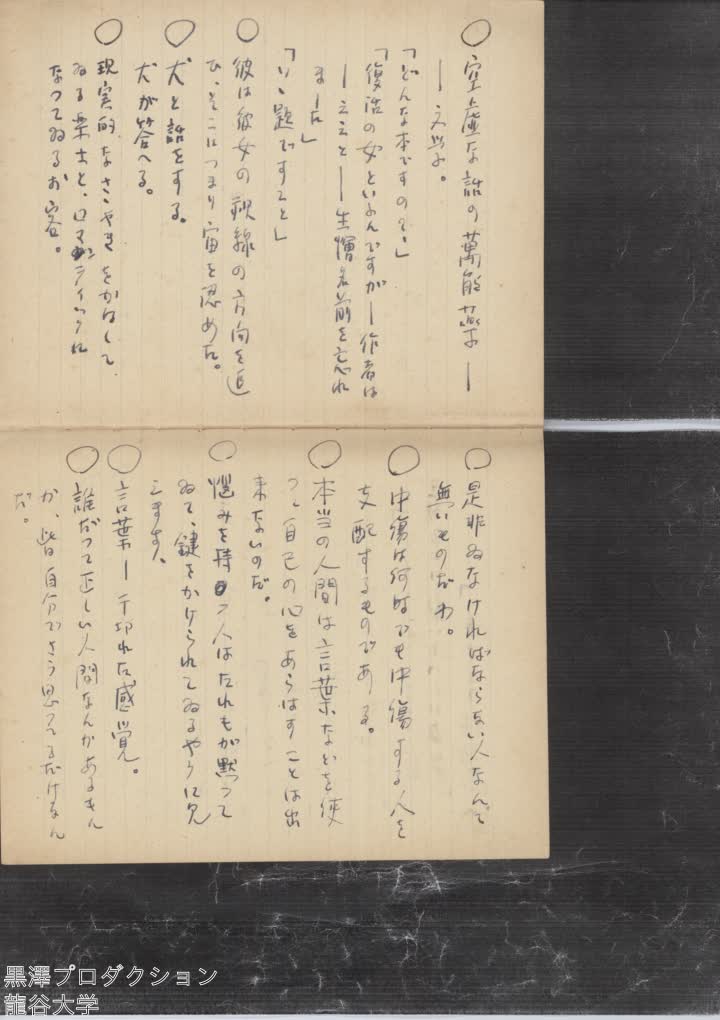 ○ 空虚な話の萬能薬ー
ー文學。
「どんな本ですの?」
「復活の女といふんですがー作者は
ーええとー生憎名前を忘れ
ました」
「いゝ題ですこと」
○ 彼は彼女の視線の方向を追
ひ、そこにつまり宙を認めた。
○ 犬と話をする。
犬が答へる。
○ 現実的なさゝやきをかはして
ゐる楽士と、ロマンティックに
なつてゐるお客。
○ 是非ゐなければならない人なんて
無いものだわ。
○ 中傷は何時でも中傷する人を
支配するものである。
○ 本当の人間は言葉などを使
つて自己の心をあらはすことは出
来ないのだ。
○ 悩みを持つ人はたれもが黙つて
ゐて、鍵をかけられてゐるやうに見
えます。
○ 言葉ー千切れた感覚。
○ 誰だつて正しい人間なんかあるもん
か、皆自分でさう思つてるだけなん
だ。
黒澤プロダクション
龍谷大学